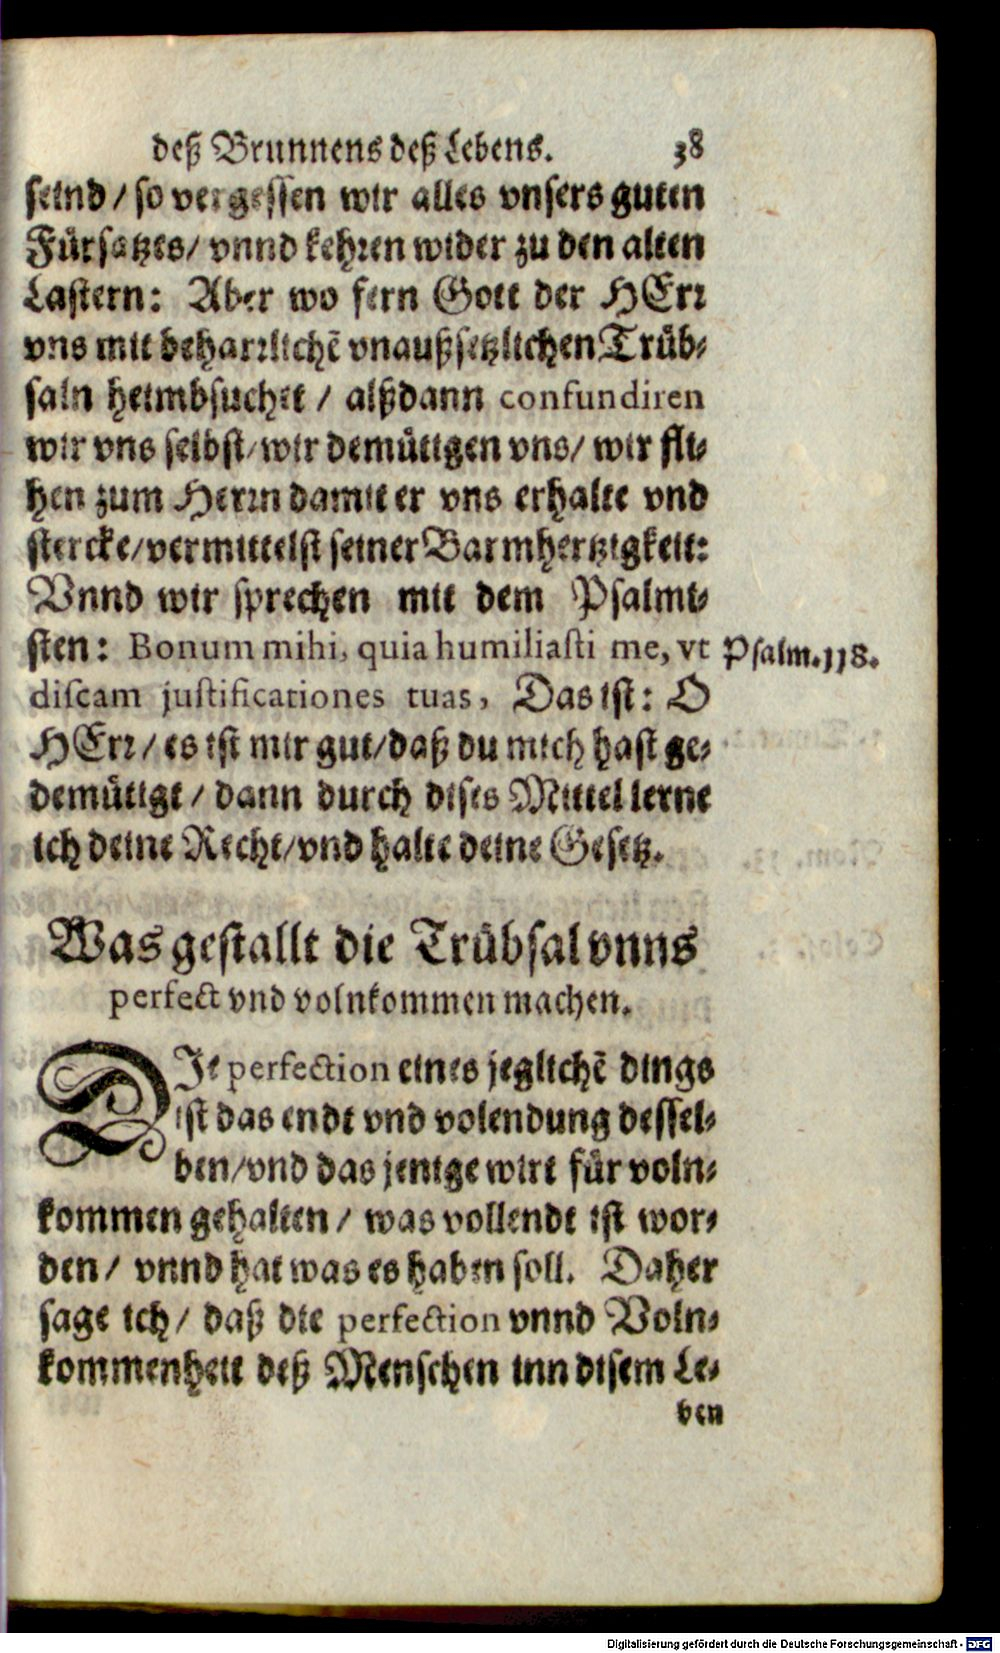 deß Brunnens deß Lebens. 38
seind / so vergessen wir alles vnsers guten
Fürsatzes / vnnd kehren wider zu den alten
Lastern: Aber wo fern Gott der HErr
vns mit beharrlichẽ vnaußsetzlichen Trüb-
saln heimbsuchet / alßdann confundiren
wir vns selbst / wir demütigen vns / wir fli-
hen zum Herrn damit er vns erhalte vnd
stercke / vermittelst seiner Barmhertzigkeit:
Vnnd wir sprechen mit dem Psalmi-
sten: Bonum mihi, quia humiliasti me, vt
Psalm. 118.
discam justificationes tuas, Das ist: O
HErr / es ist mir gut / daß du mich hast ge-
demütigt / dann durch dises Mittel lerne
ich deine Recht / vnd halte deine Gesetz.
Was gestallt die Trübsal vnns
perfect vnd volnkommen machen.
DIe perfection eines jeglichẽ dings
ist das endt vnd volendung dessel-
ben / vnd das jenige wirt für voln-
kommen gehalten / was vollendt ist wor-
den / vnnd hat was es haben soll. Daher
sage ich / daß die perfection vnnd Voln-
kommenheit deß Menschen inn disem Le-
ben
Digitalisierung gefördert durch die Deutsche Forschungsgemeinschaft - DFG